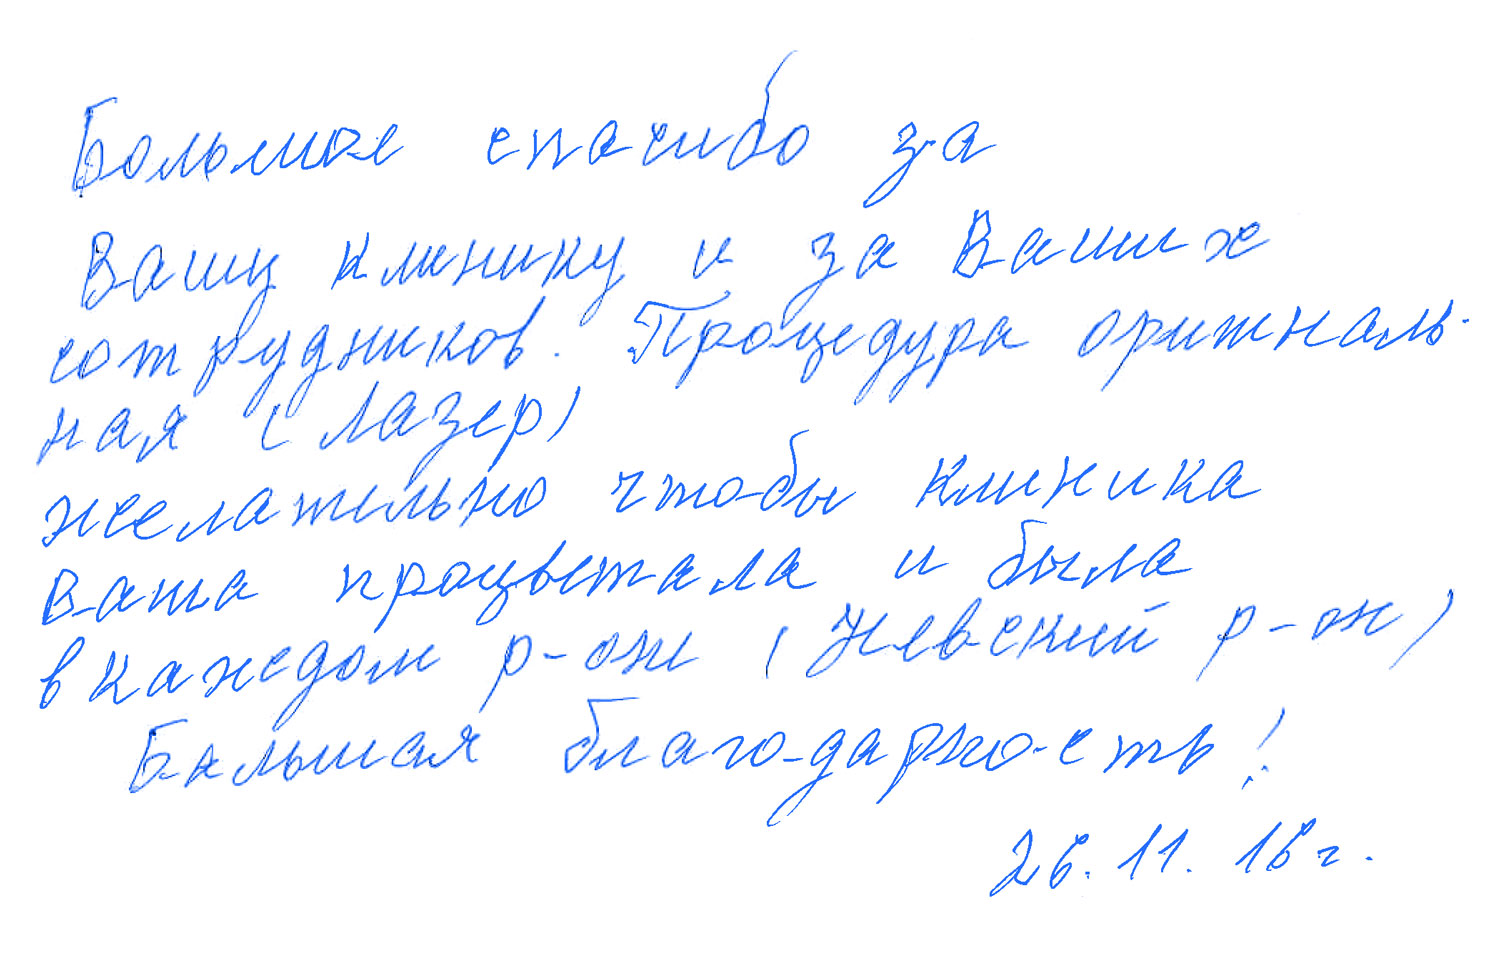 Большое спасибо за
Вашу клинику и за Ваших
сотрудников. Процедура орижналь-
ная (лазер)
желательно чтобы клиника
Ваша процветала и была
в каждом р-он (Невский р-он)
Большая благодарность!
26.11.16г.